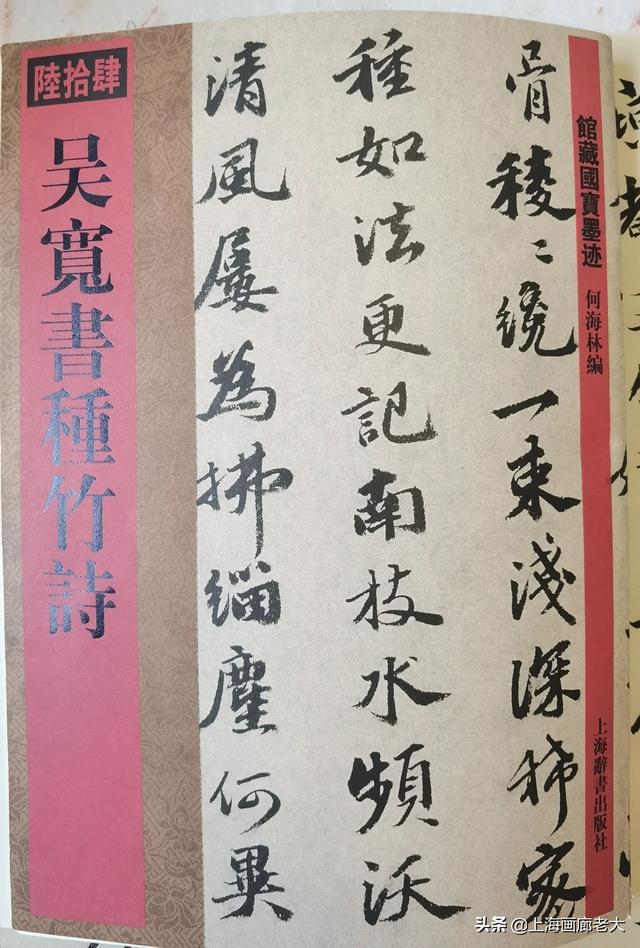 陸拾肆
吴寬書種竹詩
館藏國寶墨迹
何海林編
上海辭書出版社
骨稜〻纔一束淺深稀密
種如法更記南枝水頻沃
清風屢為拂緇塵何異
头条 @上海画廊老大